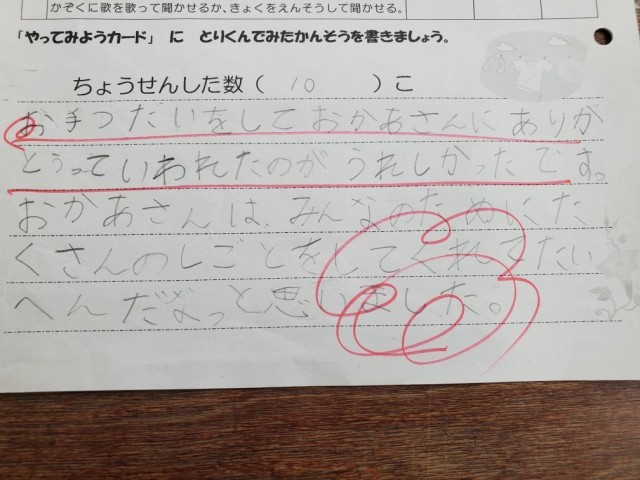 かぞくに歌を歌って聞かせるか、きょくをえんそうして聞かせる。
「やってみようカード」 に とりくんでみたかんそうを書きましょう。
ちょうせんした数（ 10 ）こ
お手つだいをしておかあさんにありが
とうっていわれたのがうれしかったです。
おかあさんは、みんなのためにた
くさんのしごとをしてくれてたい
へんだなっと思いました。